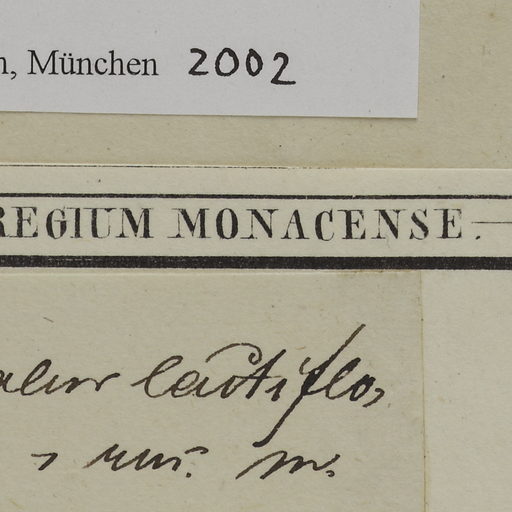 n, München 2002
REGIUM MONACENSE.
lactiflo,
m.